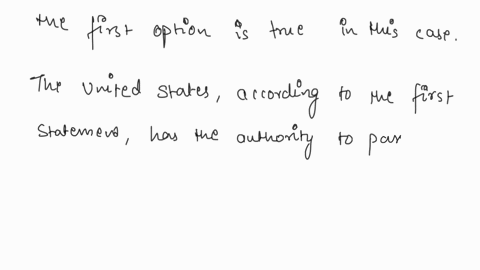 the first option is true in this case.
The United States, according to the first
statement, has the authority to par